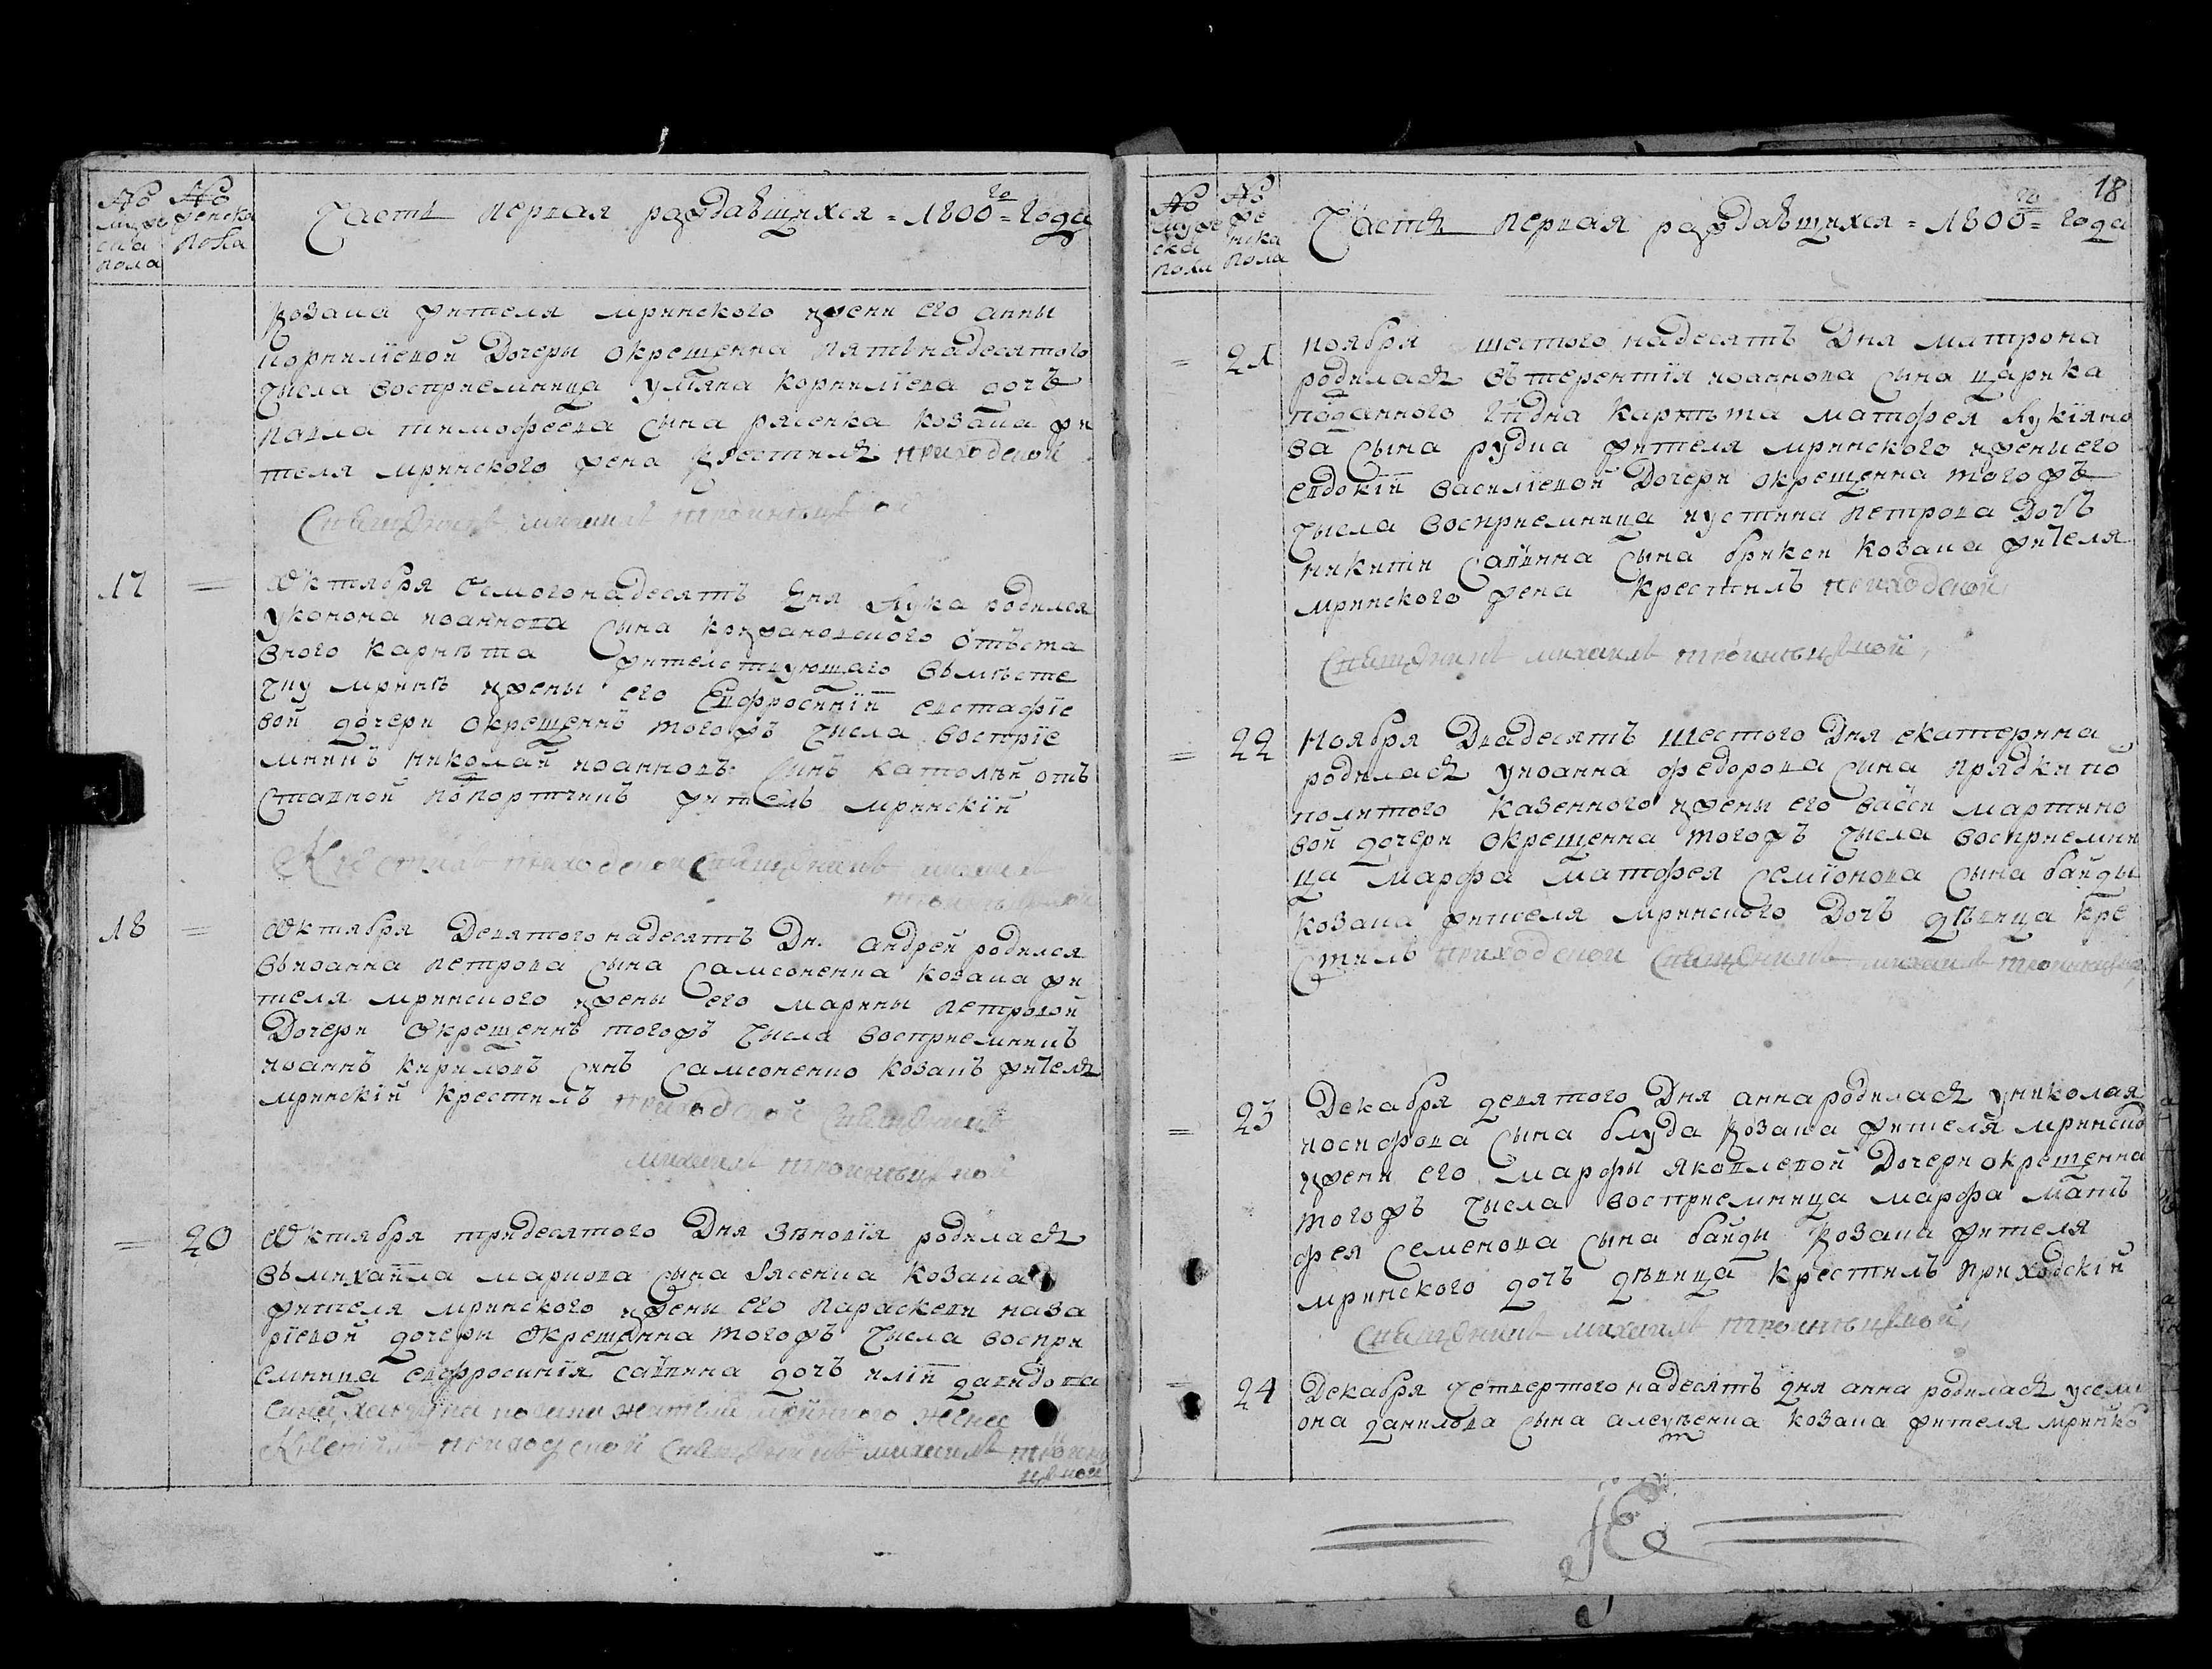 № мужеска пола
№ женска пола
Часть первая раждавшихся = 1800го = года
козака жителя мринского ижени его анны
корнилїевой Дочеры окрещенна пятьнадесятого
чысла восприемница улїяна корнилїева дочъ
павла тимофеева сына рясенка козака жи
теля мринского жена крестилъ приходской
священникъ михаилъ
17 =
Октября семогонадесятъ дня лука родился
уконона иоаннова сына кон
вного карнѣта жителствующаго вьмѣсте
чку мринѣ ижены его Евфросинїи евстафїе
вой дочери окрещеннъ тогожъ числа восприе
мникъ николай иоанновъ синъ католѣй отъ
ставной подпортчикъ житель мринскїй
Крестилъ приходской священникъ михаилъ
18 =
Октября Девятогонадесятъ Дн. андрей родился
вьиоанна петрова сына самсоненка козака жи
теля мринского ижены его марины петровой
Дочери окрещеннъ тогожъ числа восприемникъ
иоаннъ кириловъ синъ самсоненко козакъ жителъ
мринскїй крестилъ приходской священникъ
михаилъ
= 20
Октября тридесятого Дня зѣновїя родилась
вьмихаила маркова сына рясенка козака
жителя мринского ижени его параскеви наза
рїевой дочери окрещенна тогожъ числа воспри
емница евфросинїя саввина дочъ илїи давидова
сина козака жителя мринского жена
Крестилъ приходской священникъ михаилъ
18
№ мужеска пола
№ женска пола
Часть первая раждавшихся = 1800го = года
= 21
ноября шестогонадесятъ Дня матрона
родилась вътерентїя иоаннова сына царика
подданного гпдна карнѣта матфея лукїяно
ва сына рудка жителя мринского ижени его
евдокїи василїевой Дочери окрещенна тогожъ
чысла восприемница иустина петрова Дочъ
никити саввина сына брикси козака жителя
мринского жена крестилъ приходской
священникъ михаилъ
= 22
Ноября Двадесятъ шестого Дня екатерина
родилась уиоанна федорова сина прядки по
политого казенного ижены его васси мартино
вой дочери окрещенна тогожъ числа восприемни
ца марфа матфея семїонова сына байды
козака жителя мринского Дочъ дѣвица кре
стилъ приходской священникъ михаилъ
= 23
Декабря девятого Дня анна родилась униколая
иосифова сына блуда козака жителя мринско
ижени его марфы яковлевой Дочери окрещенна
тогожъ числа восприемница марфа матъ
фея семенова сына байды козака жителя
мринского дочъ дѣвица крестилъ приходскїй
священникъ михаилъ
= 24
Декабря четвертогонадесятъ дня анна родилась усеми
она данилова сына алексѣенка козака жителя мринско